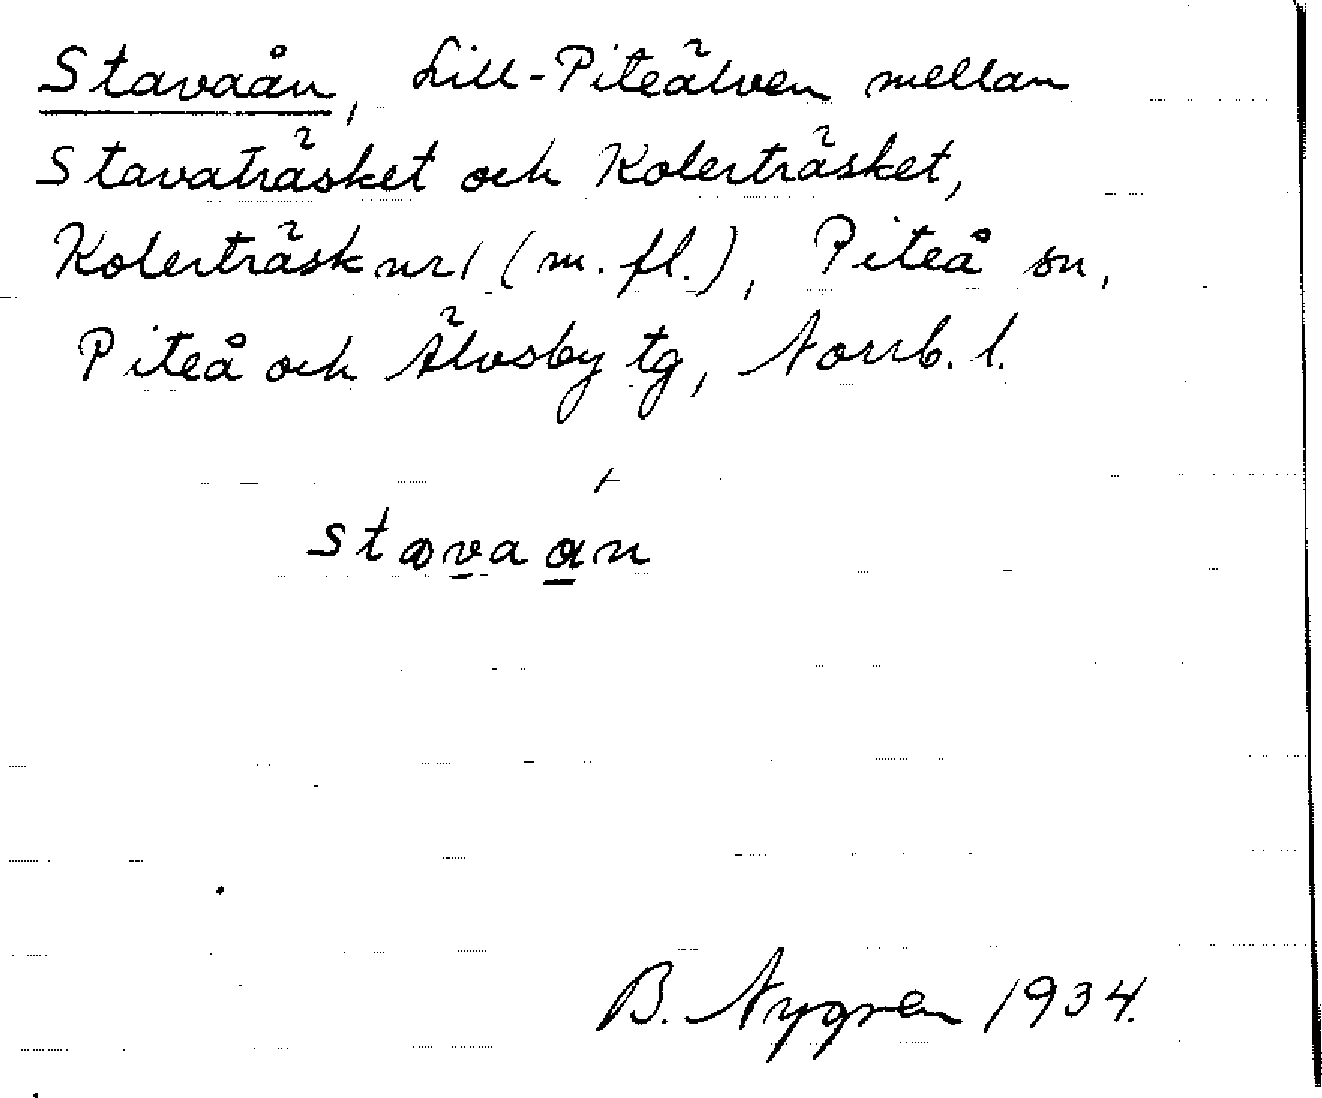 Stavaån, Lill-Piteälven mellan
Stavaträsket och Kolerträsket,
Kolerträsk nr 1 (m. fl.), Piteå sn,
Piteå och Älvsby tg, Norrb. l.
stavaan
B. Nygren 1934.